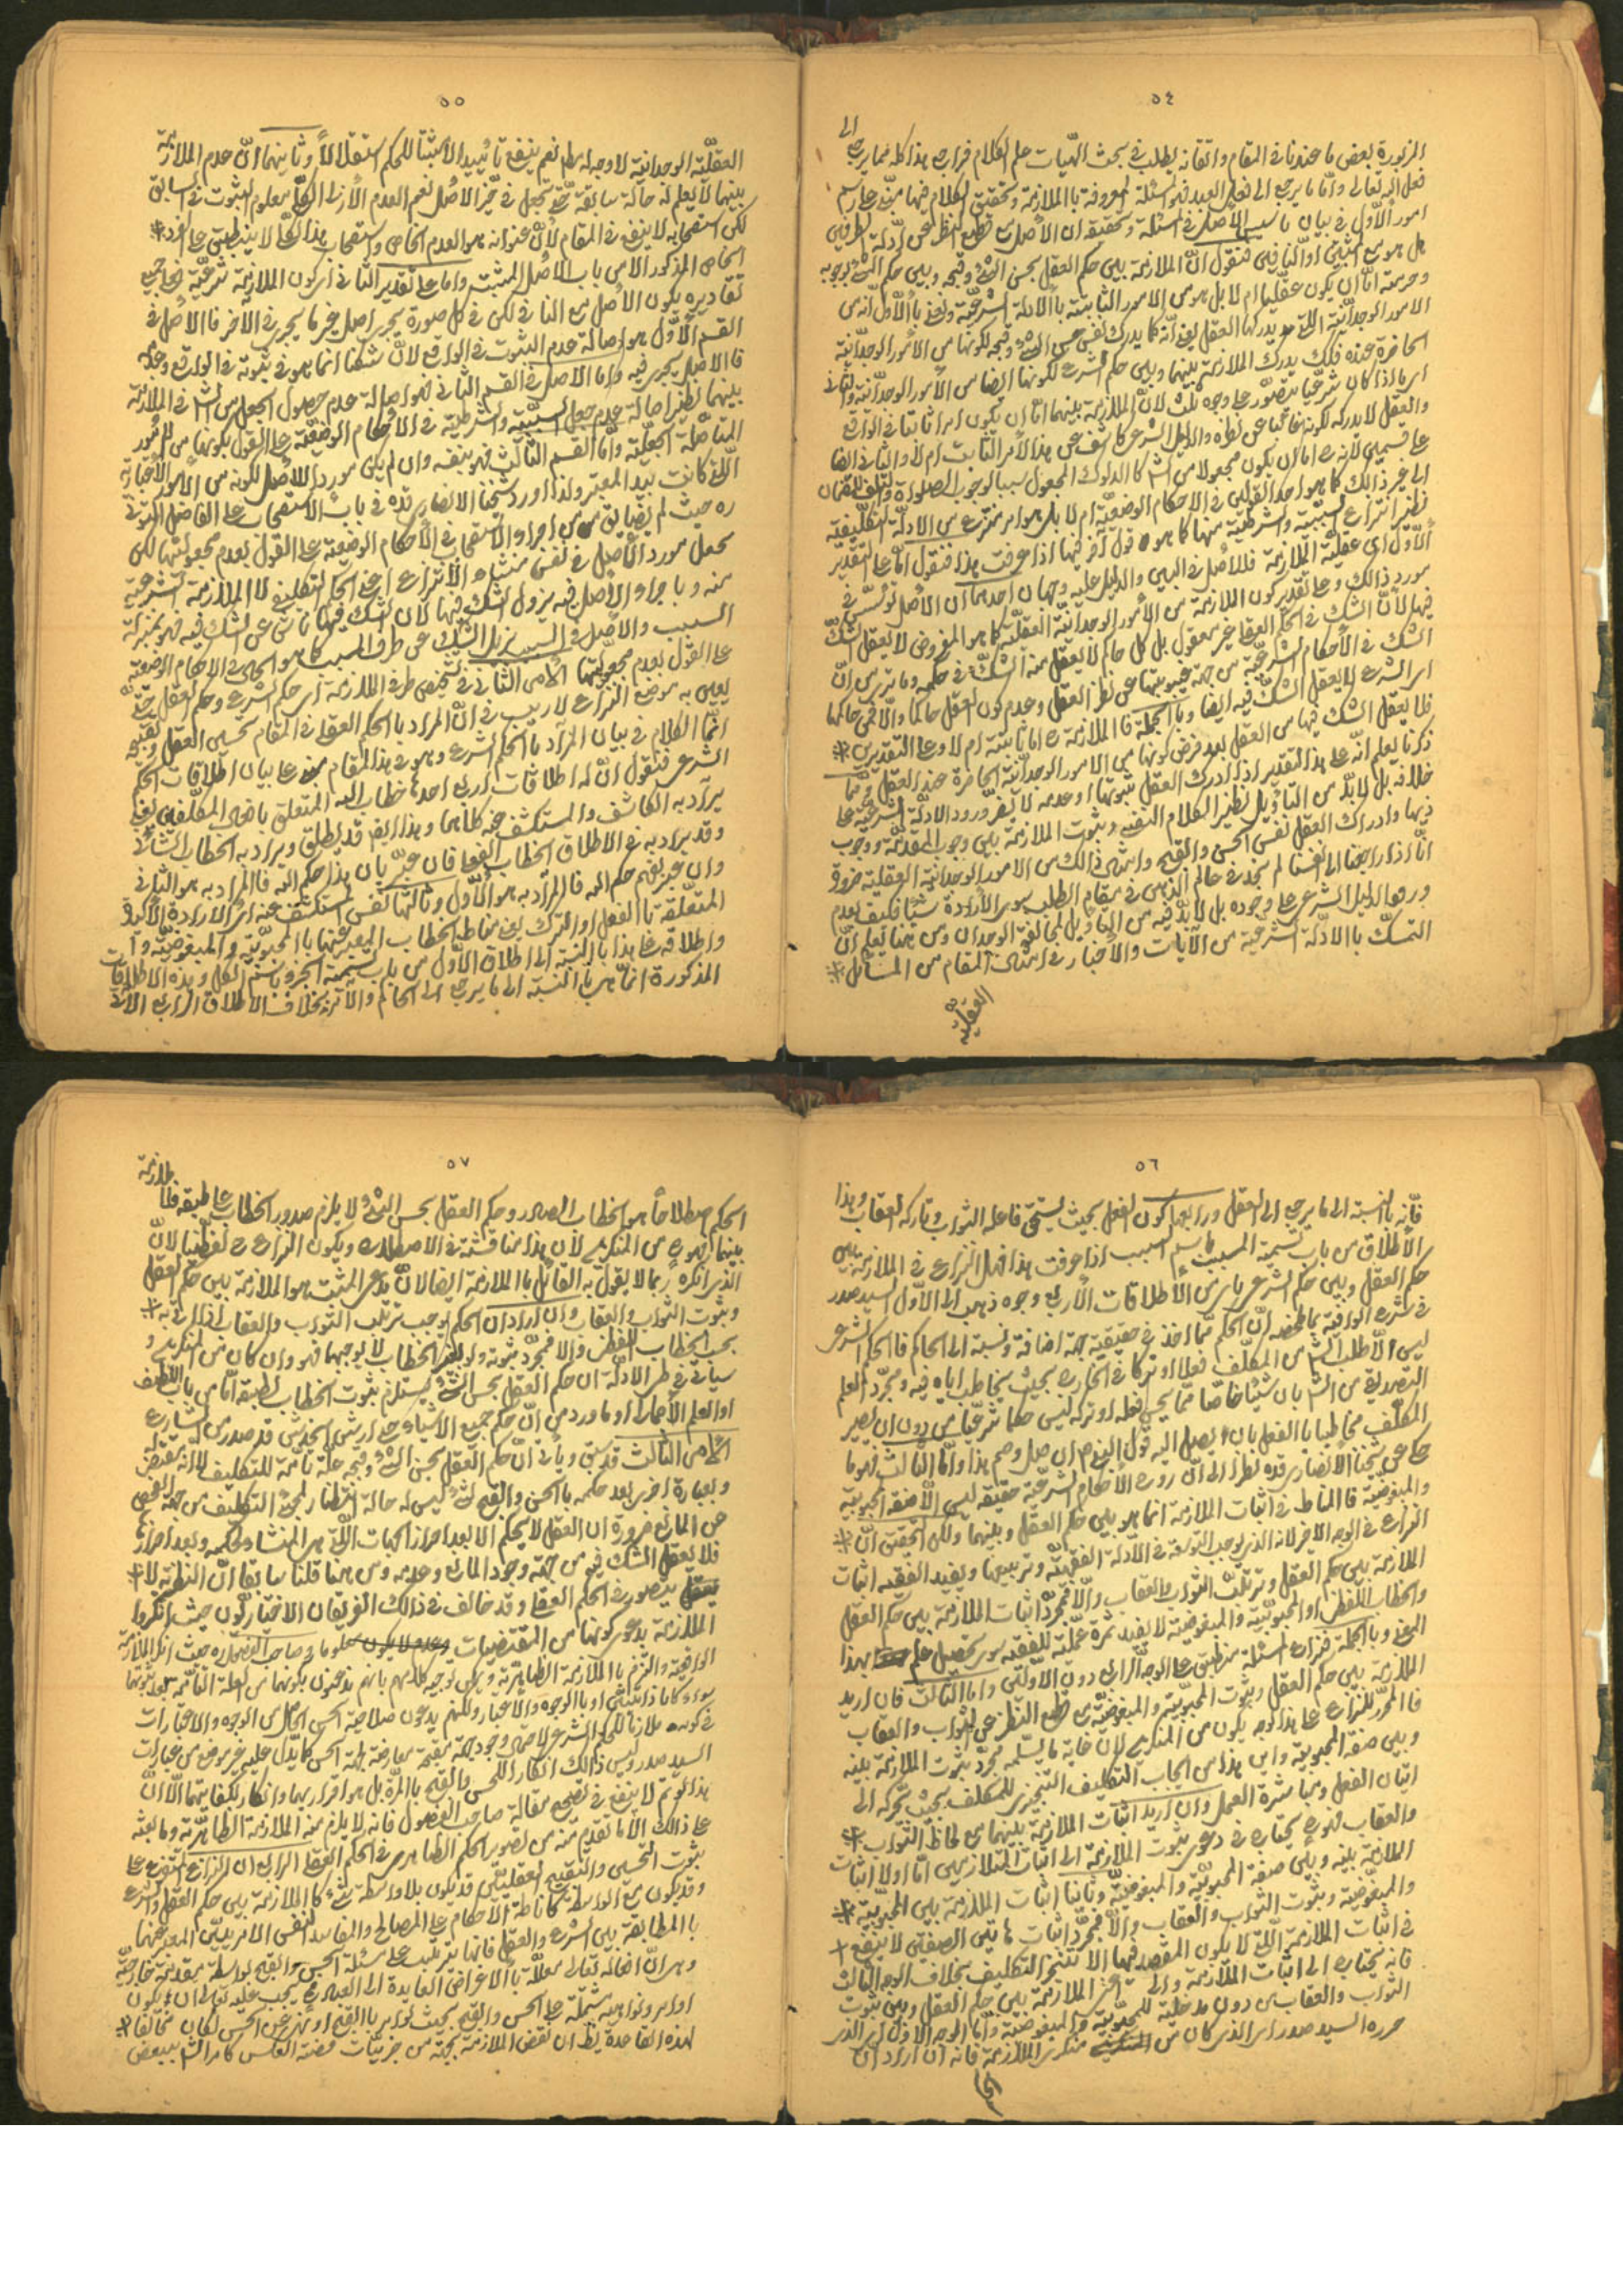 ٥٤
المزبورة بعض ما عندنا في المقام واتقانه يطلب في مبحث الهيّات علم الكلام فراجع هذا كله فيما يرجع الى
فعل الله تعالى وامّا ما يرجع الى فعل العبد فهو المسئلة المعروفة بالملازمة وتحقيق الكلام فيها مبنيّ على رسم
امور الأوّل في بيان تاسيس الأصل في المسئلة وتحقيقه ان الأصل مع قطع النظر عن ادلّة الطرفين
هل هو مع المثبتين او النافين فنقول انّ الملازمة بين حكم العقل بحسن الشئ وقبحه وبين حكم الشرع بوجوبه
وحرمته امّا ان يكون عقليّا ام لا بل هو من الامور الثابتة بالأدلة الشرعيّة ونعني بالأوّل انّه من
الامور الوجدانيّة التي يدركها العقل يعني انّه كما يدرك نفس حسن الشئ وقبحه لكونها من الأمور الوجدانيّة
الحاضرة عنده فكذلك يدرك الملازمة بينهما وبين حكم الشرع لكونها ايضا من الأمور الوجدانيّة والثاني
اى ما اذا كان شرعيّا يتصوّر على وجوه ثلث لأنّ الملازمة بينهما امّا ان يكون امرا ثابتا في الواقع
والعقل لا يدركه لكونه غائبا عن نظره والدليل الشرعي كاشف عن هذا الأمر الثابت ام لا والثاني ايضا
على قسمين لأنه امّا ان يكون مجعولا من الشارع كالدلوك المجعول سببا لوجوب الصلوة والتلف للضمان
الى غير ذلك كما هو احد القولين في الاحكام الوضعيّة ام لا بل هو امر منتزع من الادلّة التكليفيّة
نظير انتزاع السببيّة والشرطيّة منها كما هو قول آخر فيها اذا عرفت هذا فنقول امّا على التقدير
الأوّل اى عقليّة الملازمة فلا اصل في البين والدليل عليه وجهان احدهما ان الأصل تؤسّس في
مورد ذالك وعلى تقدير كون الملازمة من الأمور الوجدانيّة العقليّة كما هو المفروض لا يعقل الشكّ
فيها لأنّ الشك في الحكم العقلي غير معقول بل كل حاكم لا يعقل منه الشكّ في حكمه وما ترى من انّ
الشك في الأحكام الشرعيّة من جهة غيبوبتها عن نظر العقل وعدم كون العقل حاكما والّا فمن حاكمها
اى الشرع لا يعقل الشكّ فيه ايضا وبالجملة فالملازمة امّا ثابتة ام لا وعلى التقديرين
فلا يعقل الشك فيها من العقل بعد فرض كونها من الامور الوجدانيّة الحاضرة عند العقل وممّا
ذكرنا يعلم انّه على هذا التقدير اذا ادرك العقل ثبوتها او عدمه لا يضرّ ورود الادلّة الشرعيّة على
خلافه بل لا بدّ من التأويل نظير الكلام النفسي وثبوت الملازمة بين وجوب المقدّمة ووجوب
ذيها وادراك العقل نفس الحسن والقبح وامثال ذالك من الامور الوجدانية العقليّة ضرورة
انّا اذا راجعنا الى انفسنا لم نجد في عالم الذهن في مقام الطلب سوى الأرادة شيئا فكيف بعدم
ورود الدليل الشرعي على وجوده بل لا بدّ فيه من التأويل لمخالفته الوجدان ومن هنا يعلم انّ
التمسّك بالادلّة الشرعيّة من الآيات والأخبار في امثال المقام من المسائل
العقليّة
٥٥
العقليّة الوجدانيّة لا وجه له نعم ينفع تأييدا لا مثبتا للحكم استقلالا وثانيهما انّ عدم الملازمة
بينهما لا يعلم له حالة سابقة حتّى يجعل في حيّز الأصل نعم العدم الأزلى الكلّي معلوم الثبوت في السابق
لكن استصحابه لا ينفع في المقام لأنّ عنوانه هو العدم الخاص واستصحاب هذا الكلّي لا ينطبق على الفرد
الخاص المذكور الا من باب الأصل المثبت وامّا على تقدير الثاني اى كون الملازمة شرعيّة فعلى جميع
تقاديره يكون الأصل مع النافي لكن في كل صورة يجرى اصل غير ما يجرى في الآخر فالأصل في
القسم الأوّل هو اصالة عدم الثبوت في الواقع لأنّ شكّنا انما هو في ثبوته في الواقع وعدمه
فالأصل يجرى فيه وامّا الأصل في القسم الثاني فهو اصالة عدم حصول الجعل من الشارع في الملازمة
بينهما نظير اصالة عدم جعل السببيّة والشرطيّة في الأحكام الوضعيّة على القول بكونها من الأمور
المتاصّلة الجعليّة وامّا القسم الثالث فهو بنفسه وان لم يكن موردا للأصل لكونه من الأمور الأختيارية
الّتي كانت بيد المعتبر ولذا اورد شيخنا الانصاري قدّه في باب الاستصحاب على الفاضل التوني
ره حيث لم يضايق من اجراء الأستصحاب في الأحكام الوضعيّة على القول بعدم مجعوليّتها لكن
يجعل مورد الأصل في نفس منشاء الأنتزاع اعني الحكم التكليفي لا الملازمة الشرعيّة
منه وباجراء الأصل فيه يزول الشك فيها لأن الشك فيها ناش عن الشك فيه فهو بمنزلة
السبب والأصل في السبب يزيل الشك عن طرف المسبب كما هو الحال في الاحكام الوضعيّة
على القول بعدم مجعوليّتها الأمر الثاني في تشخيص طرفي الملازمة اى حكم الشرع وحكم العقل حتّى
يعيّن به موضع النزاع لا ريب في انّ المراد بالحكم العقلي في المقام تحسين العقل وتقبيحه
انّما الكلام في بيان المراد بالحكم الشرعي وهو في هذا المقام مبنيّ على بيان اطلاقات الحكم
الشرعي فنقول انّ له اطلاقات اربع احدها خطاب الله المتعلق بافعال المكلّفين يعني
يراد به الكاشف والمستكشف عنه كلاهما وهذا الأيضا قد يطلق ويراد به الخطاب الشأني
وقد يراد به في الاطلاق الخطاب الفعلي فان عبّر بان هذا حكم الله فالمراد به هو الثاني
وان عبّر بفهم حكم الله فالمراد به هو الأوّل وثالثها نفس المستكشف عنه اى الأرادة الأكيدة
المتعلّقة بالفعل او الترك يعني مخاطبه الخطاب المعبّر عنها بالمحبوبيّة والمبغوضيّة وا
واطلاقه على هذا بالنسبة الى اطلاق الأوّل من باب تسمية الجزء باسم الكلّ وهذه الاطلاقات
المذكورة انّما هي بالنسبة الى ما يرجع الى الحاكم والآمر بخلاف الأطلاق الرابع الآتي
٥٦
فانّه بالنسبة الى ما يرجع الى العقل ورابعها كون الفعل بحيث يستحق فاعله الثواب وتاركه العقاب وهذا
الأطلاق من باب تسمية المسبب باسم السبب اذا عرفت هذا فهل النزاع في الملازمة بين
حكم العقل وبين حكم الشرع باىّ من الأطلاقات الأربع وجوه ذهب الى الأوّل السيد صدر
في شرح الوافية بما ملخصه انّ الحكم ممّا اخذ في حقيقته جهة اضافة ونسبة الى الحاكم فالحكم الشرعي
ليس الّا طلب الشارع من المكلّف فعلا او تركا في الخارج بحيث يخاطب اياه فيه ومجرّد العلم
التصديق من الشارع بان شيئا خاصّا ممّا يحسن فعله او تركه ليس حكما شرعيّا من دون ان يصير
المكلّف مخاطبا بالفعل بان يصل اليه قول النبي ص ان صل وصم هذا وامّا الثالث فهو ما
حكى عن شيخنا الأنصاري قدّه نظرا الى انّ روح الأحكام الشرعيّة حقيقة ليس الّا صفة المحبوبيّة
والمبغوضيّة فالمناط في اثبات الملازمة انما هو بين حكم العقل وبينهما ولكن التحقيق انّ
النزاع في الوجه الاخير لانه الذي يوجب التوسعة في الأدلّة الفقهيّة وترتيبها ويفيد الفقيه اثبات
الملازمة بين حكم العقل وترتّب الثواب والعقاب والّا فمجرّد اثبات الملازمة بين حكم العقل
والخطاب اللفظي او المحبوبيّة والمبغوضيّة لا يفيد ثمرة عمليّة للفقيه سوى تحصيل علم بهذا
المعنى وبالجملة فنزاع المسئلة منطبق على الوجه الرابع دون الأولين وامّا الثالث فان اريد
الملازمة بين حكم العقل وثبوت المحبوبيّة والمبغوضيّة مع قطع النظر عن الثواب والعقاب
فالمحرّر للنزاع على هذا الوجه يكون من المنكرين لأنّ غاية ما يسلمه مجرّد ثبوت الملازمة بينه
وبين صفة المحبوبيّة واين هذا من ايجاب التكليف التنجيزي للمكلف بحيث تحرّكه الى
اتيان الفعل ومباشرة العمل وان اريد اثبات الملازمة بينهما مع لحاظ الثواب
والعقاب فنوع يحتاج في دعوى ثبوت الملازمة الى اثبات المتلازمين امّا اولا اثبات
الملازمة بينه وبين صفة المحبوبيّة والمبغوضيّة وثانيا اثبات الملازمة بين المحبوبيّة
والمبغوضيّة وثبوت الثواب والعقاب والّا فمجرّد اثبات هاتين الصفتين لا ينفع
في اثبات الملازمة التي لا يكون المقصد فيها الّا تنجّز التكليف بخلاف الوجه الثالث
فانه يحتاج الى اثبات الملازمة بين حكم العقل وبين ثبوت
الثواب والعقاب من دون مدخلية للمحبوبيّة والمبغوضيّة وامّا الوجه الاول اى الذي
حرره السيد صدر اى الذي كان من منكرى الملازمة فانه ان اراد ان
الحكم
٥٧
الحكم اصطلاحا هو الخطاب الصادر وحكم العقل بحسن الشئ لا يلزم صدور الخطاب على طبقه فلا ملازمة
بينهما فهو من المنكرين لأن هذا مناقشة في الأصطلاح ويكون النزاع لفظيّا لأنّ
الذي انكره ربما لا يقول به القائل بالملازمة ايضا لأنّ مدعى المثبت هو الملازمة بين حكم العقل
وثبوت الثواب والعقاب وان اراد ان الحكم لوجب ترتّب الثواب والعقاب اذا اتى به
بحسب الخطاب اللفظي والا فمجرّد ثبوته ولو بغير الخطاب لا يوجبهما فهو وان كان من المنكرين و
سيأتي في طى الادلّة ان حكم العقل بحسن الشئ يستلزم ثبوت الخطاب بطبقه امّا من باب اللطف
او العلم الأجمالى او ما ورد من انّ حكم جميع الأشياء حتى ارش الخدش قد صدر من الشارع
الأمر الثالث قد سبق ويأتي انّ حكم العقل بحسن الشئ وقبحه علّة تامّة للتكليف لا انّه مقتض له
وبعبارة اخرى بعد حكمه بالحسن والقبح لشئ ليس له حالة انتظار لمجئ التكليف من جهة الفحص
عن المانع ضرورة ان العقل لا يحكم الا بعد احراز الجهات التي هي المنشاء لحكمه وبعد احرازها
فلا يعقل الشك فيه من جهة وجود المانع وعدمه ومن هنا قلنا سابقا انّ النظرة لا
يتصور في الحكم العقلي وقد خالف في ذالك الفريقان الاخباريّون حيث انكروا
الملازمة بدعوى كونها من المقتضيات وصاحب الفصول ره حيث انكر الملازمة
الواقعيّة والتزم بالملازمة الظاهريّة ويمكن توجيه كلامهم بانهم يذعنون بكونهما من العلة التامّة بعد ثبوتهما
سواء كانا ذاتيين او بالوجوه والأعتبار ولكنهم يدعون صلاحية الحسن الحاصل من الوجوه والاعتبارات
في كونه ملازما للحكم الشرعي لاحتمال وجود جهة مقبّحة معارضة لجهة الحسن كما يدّل عليه غير موضع من عبارت
السيد صدر وليس ذالك انكارا للحسن والقبح بالمرّة بل هو اقرار بهما وانكار لكفايتهما الّا انّ
هذا التوهم لا ينفع في تصحيح مقالة صاحب الفصول فانه لا يلزم منه الملازمة الظاهريّة وما بعثه
على ذالك الا ما تقدم منه من تصور الحكم الظاهري في الحكم العقلي الرابع ان النزاع المتفرع على
ثبوت التحسين والتقبيح العقليين قد يكون بلا وساطة شئ كالملازمة بين حكم العقل والشرع
وقد يكون مع الواسطة كاناطة الأحكام على المصالح والمفاسد لنفس الأمريتين المعبر عنها
بالمطابقة بين الشرع والعقل فانها تترتّب على مسئلة الحسن والقبح بواسطة مقدّمة خارجيّة
وهي انّ افعاله تعالى معلّلة بالأغراض العائدة الى العباد فيجب عليه تعالى ان يكون
اوامره ونواهيه مشتملة على الحسن والقبح بحيث لو امر بالقبيح او نهى عن الحسن لكان مخالفا
لهذه القاعدة يظهر ان نقض الملازمة بجهة من جزئيات قضية العكس كامر الشارع ببعض